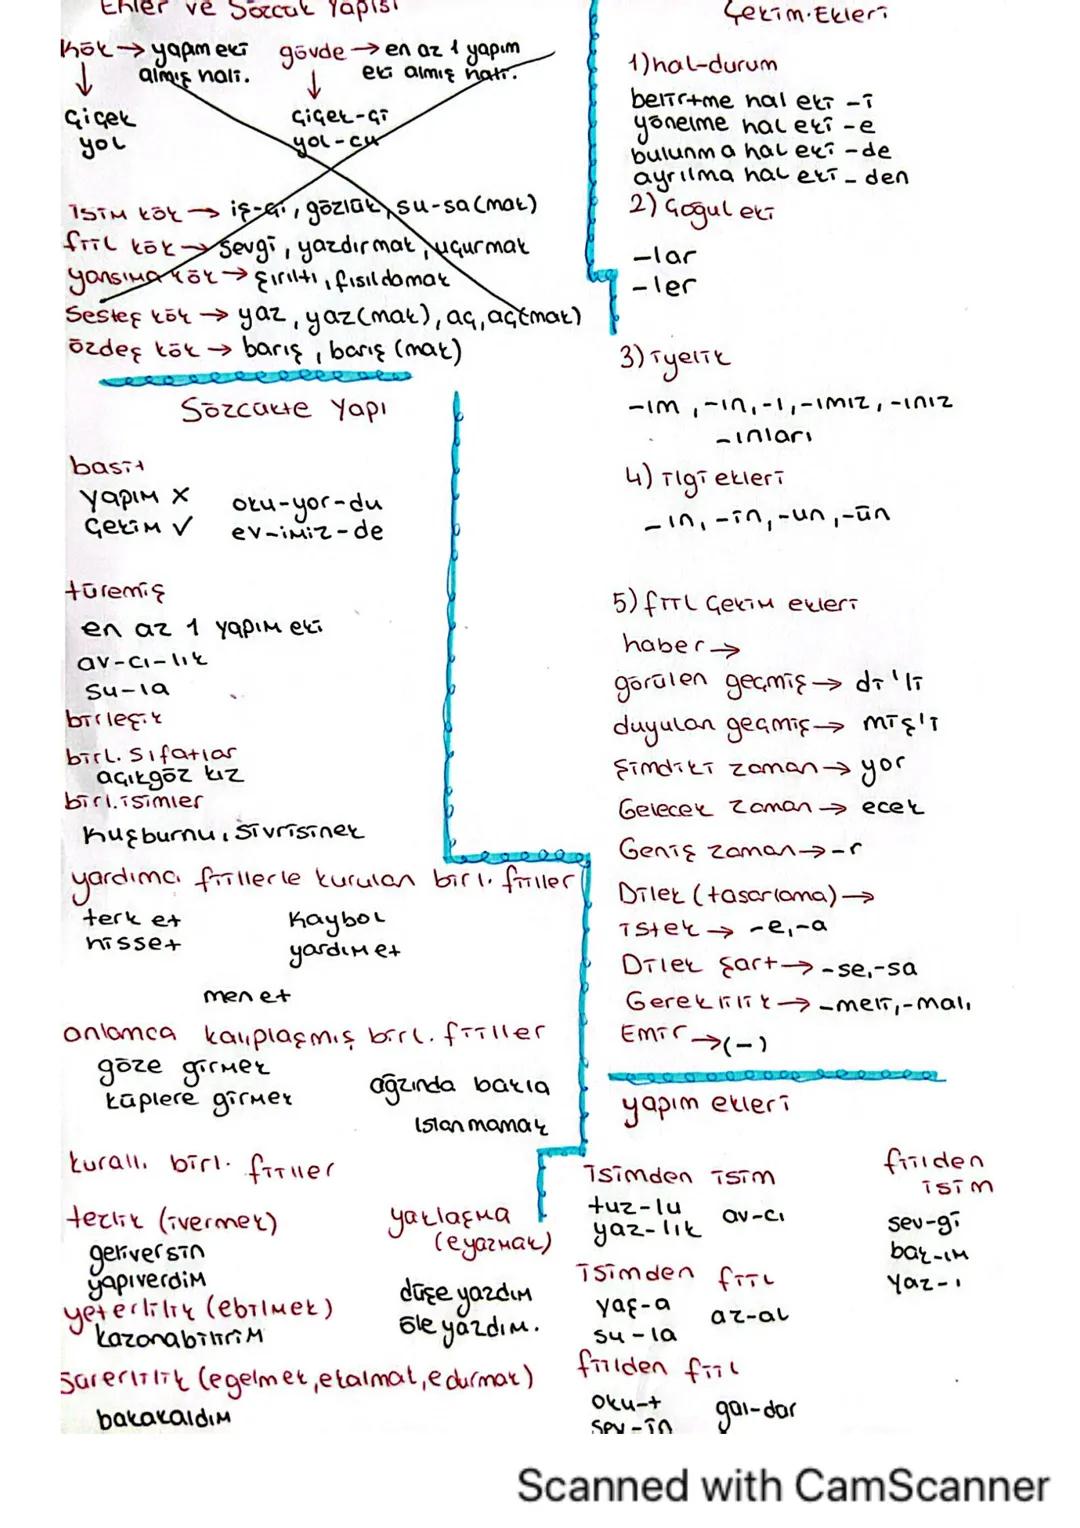 Ekler ve Sözcük Yapısı
Kök → yapım eki almış hali.
gövde → en az 1 yapım eki almış hali.
çiçek
yol
çiçek-çi
yol-cu
isim kök → iş-çi, gözlük, su-sa(mak)
fiil kök → sevgi, yazdırmak, uçurmak
yansıma kök → şırıltı, fısıldamak
Sesteş kök → yaz, yaz(mak), aç, aç(mak)
özdeş kök → barış, barış (mak)
Sözcükte Yapı
basit
yapım X
Çekim ✓
oku-yor-du
ev-imiz-de
türemiş
en az 1 yapım eki
av-cı-lık
su-la
birleşik
birl. sıfatlar
açıkgöz kız
birl. isimler
Kuşburnu, sivrisinek
yardımcı fiillerle kurulan birl. fiiller
terk et
hisset
Kaybol
yardım et
men et
anlamca kalıplaşmış birl. fiiller
göze girmek
küplere girmek
ağzında bakla
ıslanmamak
kurallı birl. fiiller
tezlik (ivermek)
geliversin
yapıverdim
yeterlilik (ebilmek)
kazanabilirim
yaklaşma
(eyazmak)
düşe yazdım
öle yazdım.
sürerlilik (egelmek, ekalmak, edurmak)
bakakaldım
Çekim Ekleri
1) hal-durum
belirtme hal eki -i
yönelme hal eki -e
bulunma hal eki -de
ayrılma hal eki - den
2) Çoğul eki
-lar
-ler
3) iyelik
-ım, -ın, -ı, -ımız, -ınız
-ınları
4) ilgi ekleri
-ın, -in, -un, -ün
5) fiil Çekim ekleri
haber →
görülen geçmiş → di'li
duyulan geçmiş → miş'i
Şimdiki zaman → yor
Gelecek zaman → ecek
Geniş zaman → -r
Dilek (tasarlama) →
istek → -e, -a
Dilek şart → -se, -sa
Gereklilik → -meli, -malı
Emir → (-)
yapım ekleri
isimden isim
tuz-lu
yaz-lık
av-cı
isimden fiil
yaş-a
su-la
az-al
fiilden fiil
oku-t
sev-in
gal-dar
fiilden
isim
sev-gi
bak-ım
yaz-ı
Scanned with CamScanner